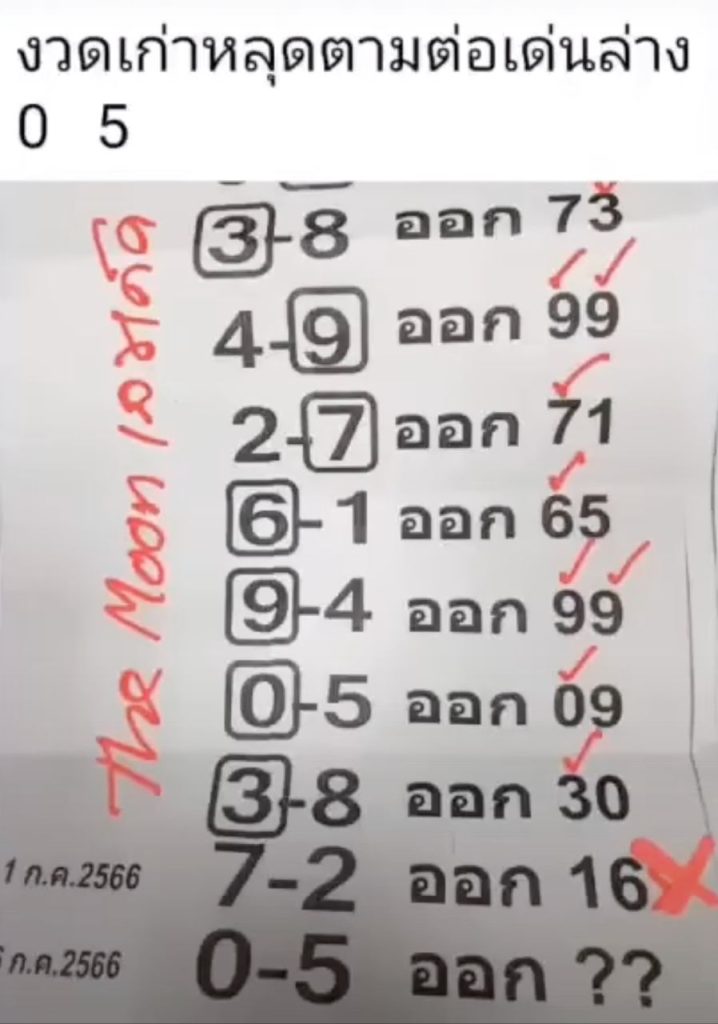 งวดเก่าหลุดตามต่อเด่นล่าง
0 5
3-8 ออก 73
4-9 ออก 99
2-7 ออก 71
6-1 ออก 65
9-4 ออก 99
0-5 ออก 09
3-8 ออก 30
1 ก.ค.2566 7-2 ออก 16
ก.ค.2566 0-5 ออก ??
The Moon